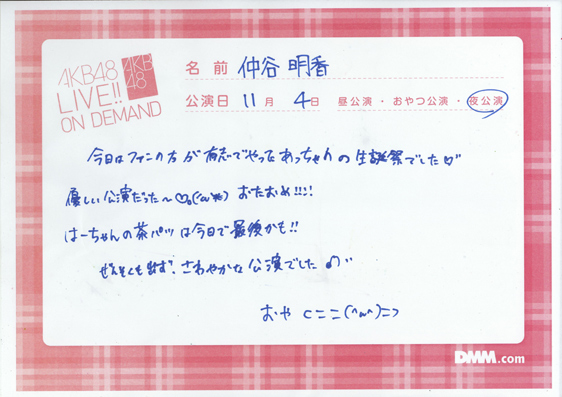 AKB48
LIVE!!
ON DEMAND
AKB
48
名前 仲谷 明香
公演日 11月 4日 昼公演・おやつ公演・夜公演
今日はファンの方が有志でやってあっちゃんの生誕祭でした♡"
優しい公演だった〜♡。(^ω^) おたおめ!!!!
はーちゃんの茶パツは今日で最後かも!!
ぜんそくも出ず、さわやかな公演でした♪"
おや ⊂ニニ(^ω^)ニ⊃
DMM.com